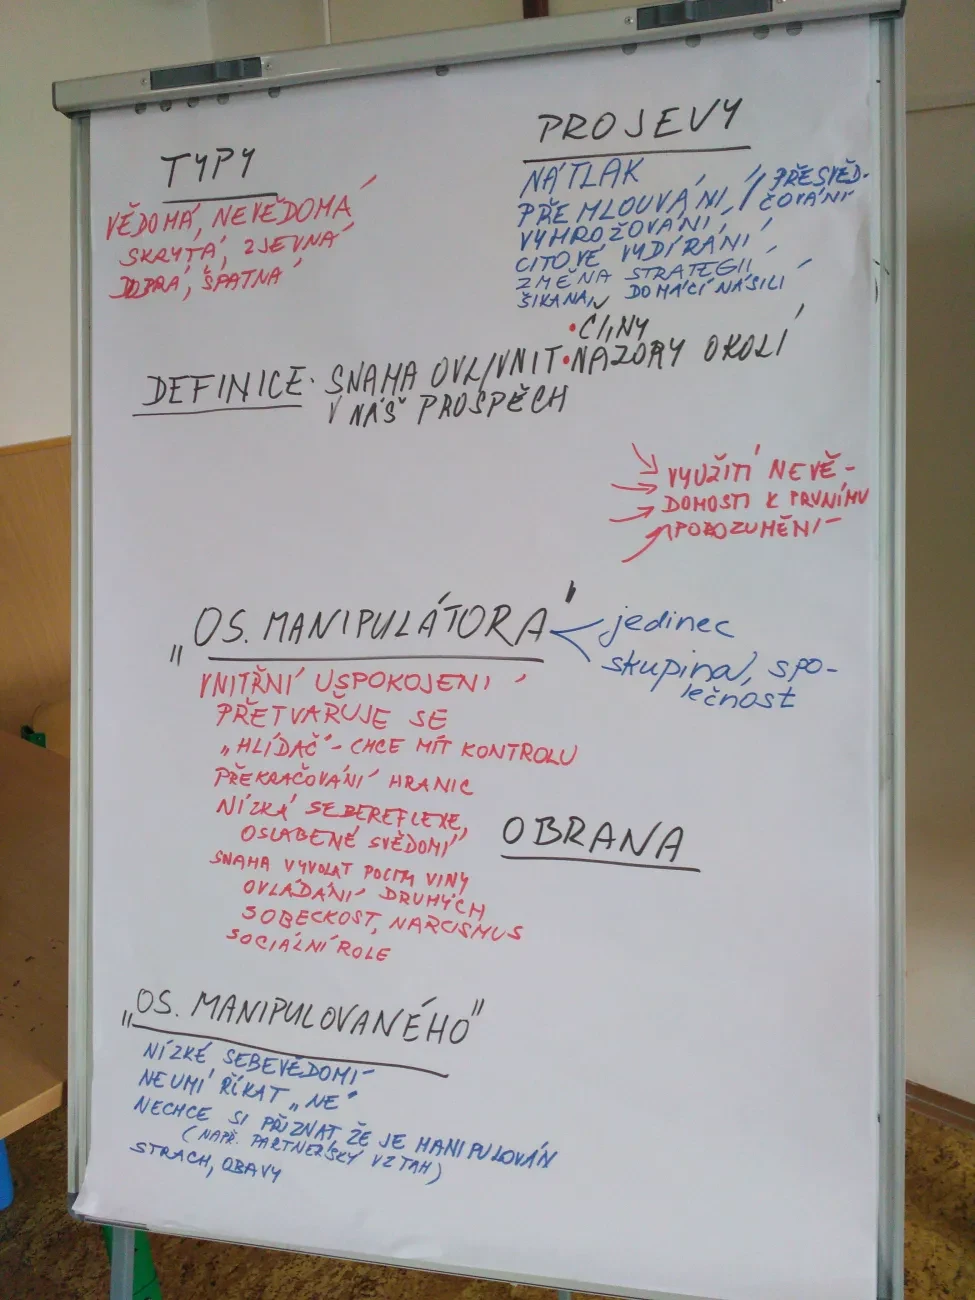 TYPY
VĚDOMÁ, NEVĚDOMÁ
SKRYTÁ, ZJEVNÁ
DOBRÁ, ŠPATNÁ
PROJEVY
NÁTLAK
PŘEMLOUVÁNÍ / PŘESVĚD-
ČOVÁNÍ
VYHROŽOVÁNÍ
CITOVÉ VYDÍRÁNÍ
ZMĚNA STRATEGII
ŠIKANA, DOMÁCÍ NÁSILÍ
• ČINY
DEFINICE: SNAHA OVLIVNIT • NÁZORY OKOLÍ
V NÁŠ PROSPĚCH
VYUŽITÍ NEVĚ-
DOMOSTI K PRVNÍMU
POROZUMĚNÍ
„OS. MANIPULÁTORA"
jedinec
skupina, spo-
lečnost
VNITŘNÍ USPOKOJENÍ
PŘETVAŘUJE SE
„HLÍDAČ" - CHCE MÍT KONTROLU
PŘEKRAČOVÁNÍ HRANIC
NÍZKÁ SEBEREFLEXE,
OSLABENÉ SVĚDOMÍ
SNAHA VYVOLAT POCITY VINY
OVLÁDÁNÍ DRUHÝCH
SOBECKOST, NARCISMUS
SOCIÁLNÍ ROLE
OBRANA
„OS. MANIPULOVANÉHO"
NÍZKÉ SEBEVĚDOMÍ
NEUMÍ ŘÍKAT „NE"
NECHCE SI PŘIZNAT, ŽE JE MANIPULOVÁN
(NAPŘ. PARTNERSKÝ VZTAH)
STRACH, OBAVY